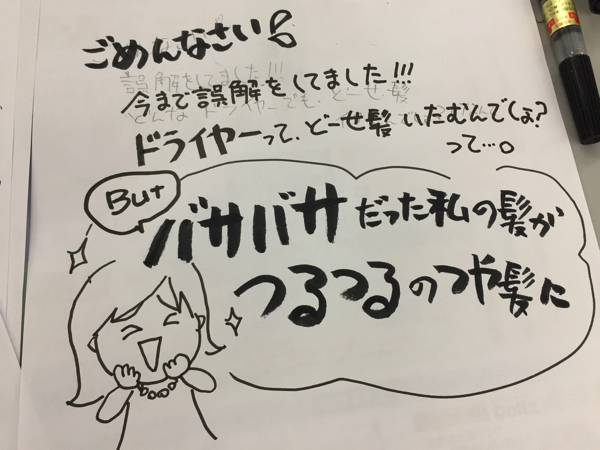 ごめんなさい!
誤解をしてました!!!
今まで誤解をしてました!!!
ドライヤーって、どーせ髪いたむんでしょ?
って…。
But
バサバサだった私の髪が
つるつるのつや髪に